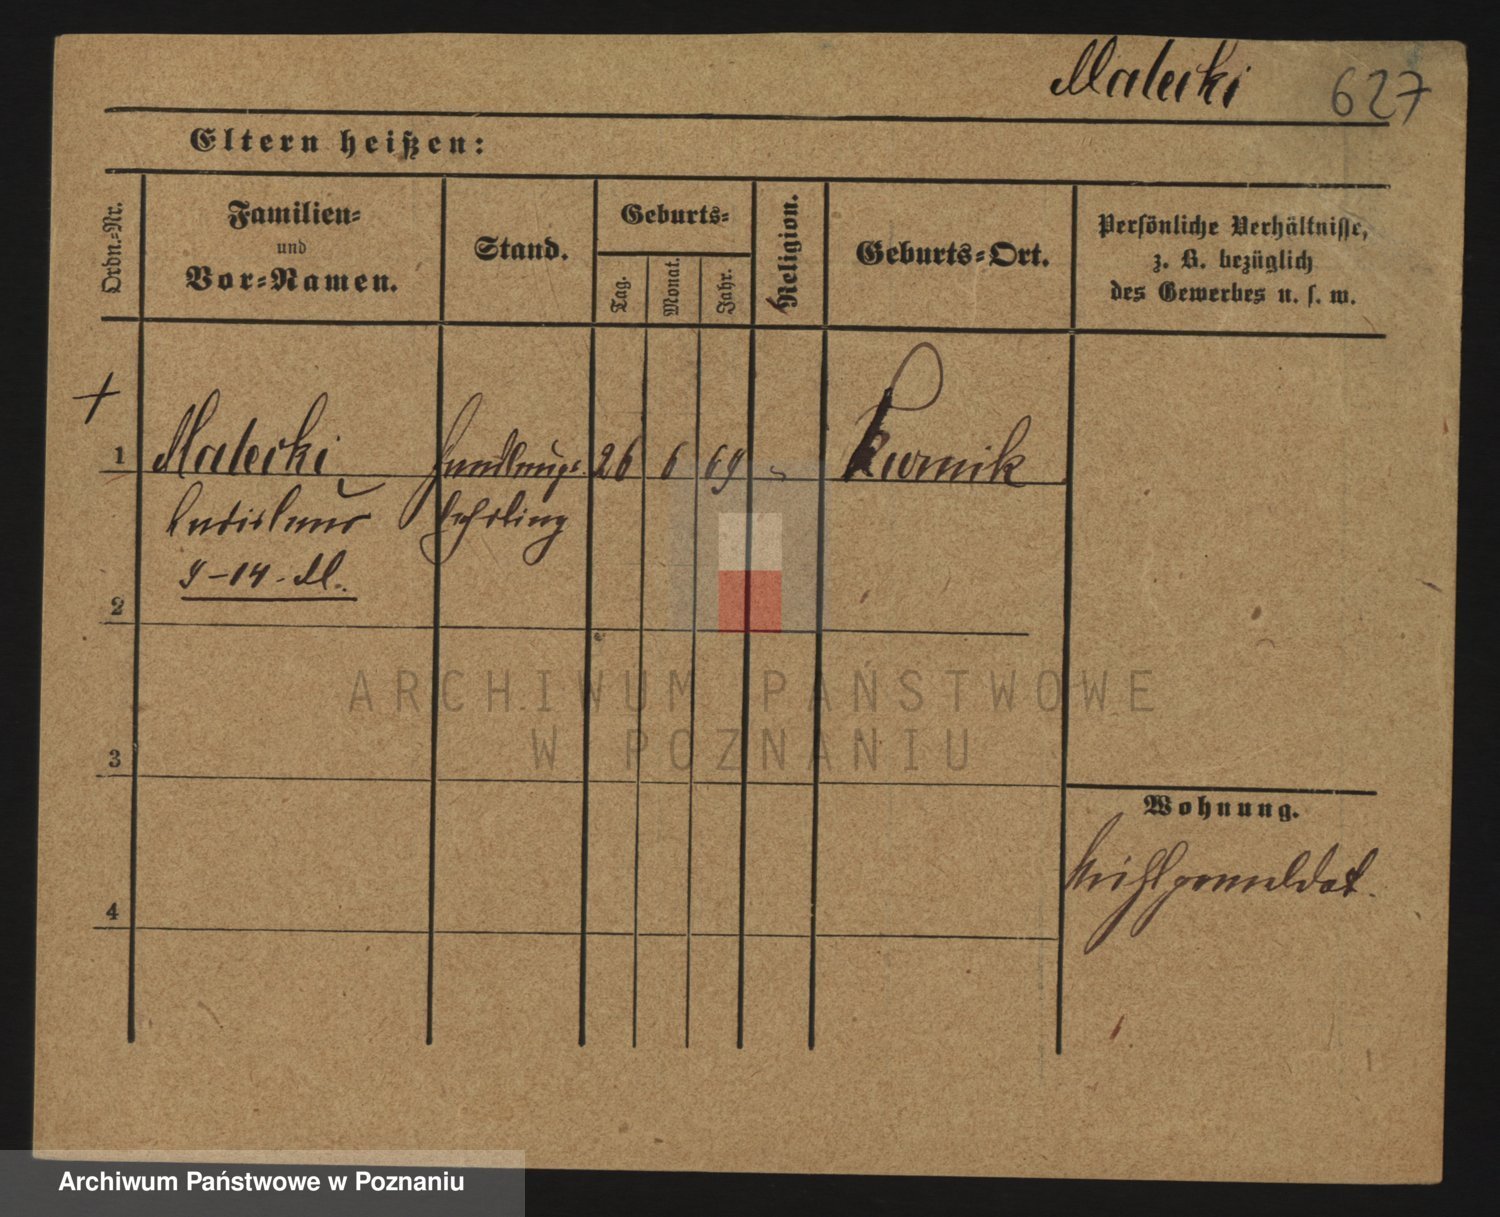 Malecki 627
Eltern heißen:
Ordn.-Nr.
Familien-
und
Vor-Namen.
Stand.
Geburts-
Tag.
Monat.
Jahr.
Religion.
Geburts-Ort.
Persönliche Verhältnisse,
z. B. bezüglich
des Gewerbes u. s. w.
1 Malecki Handlungs- 26 6 69 Kurnik
Ladislaus Lehrling
9-14-M.
2
3
4
Wohnung.
Nicht gemeldet.
ARCHIWUM PAŃSTWOWE
W POZNANIU
Archiwum Państwowe w Poznaniu